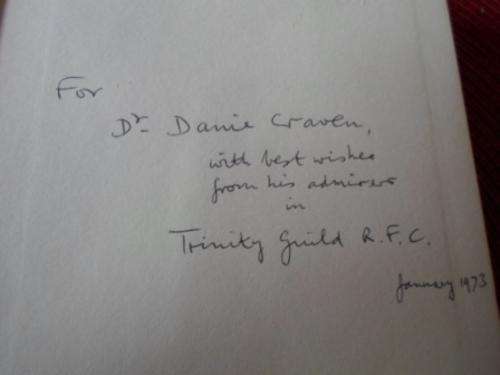 For
Dr. Danie Craven,
with best wishes
from his admirers
in
Trinity Guild R.F.C.
January 1973